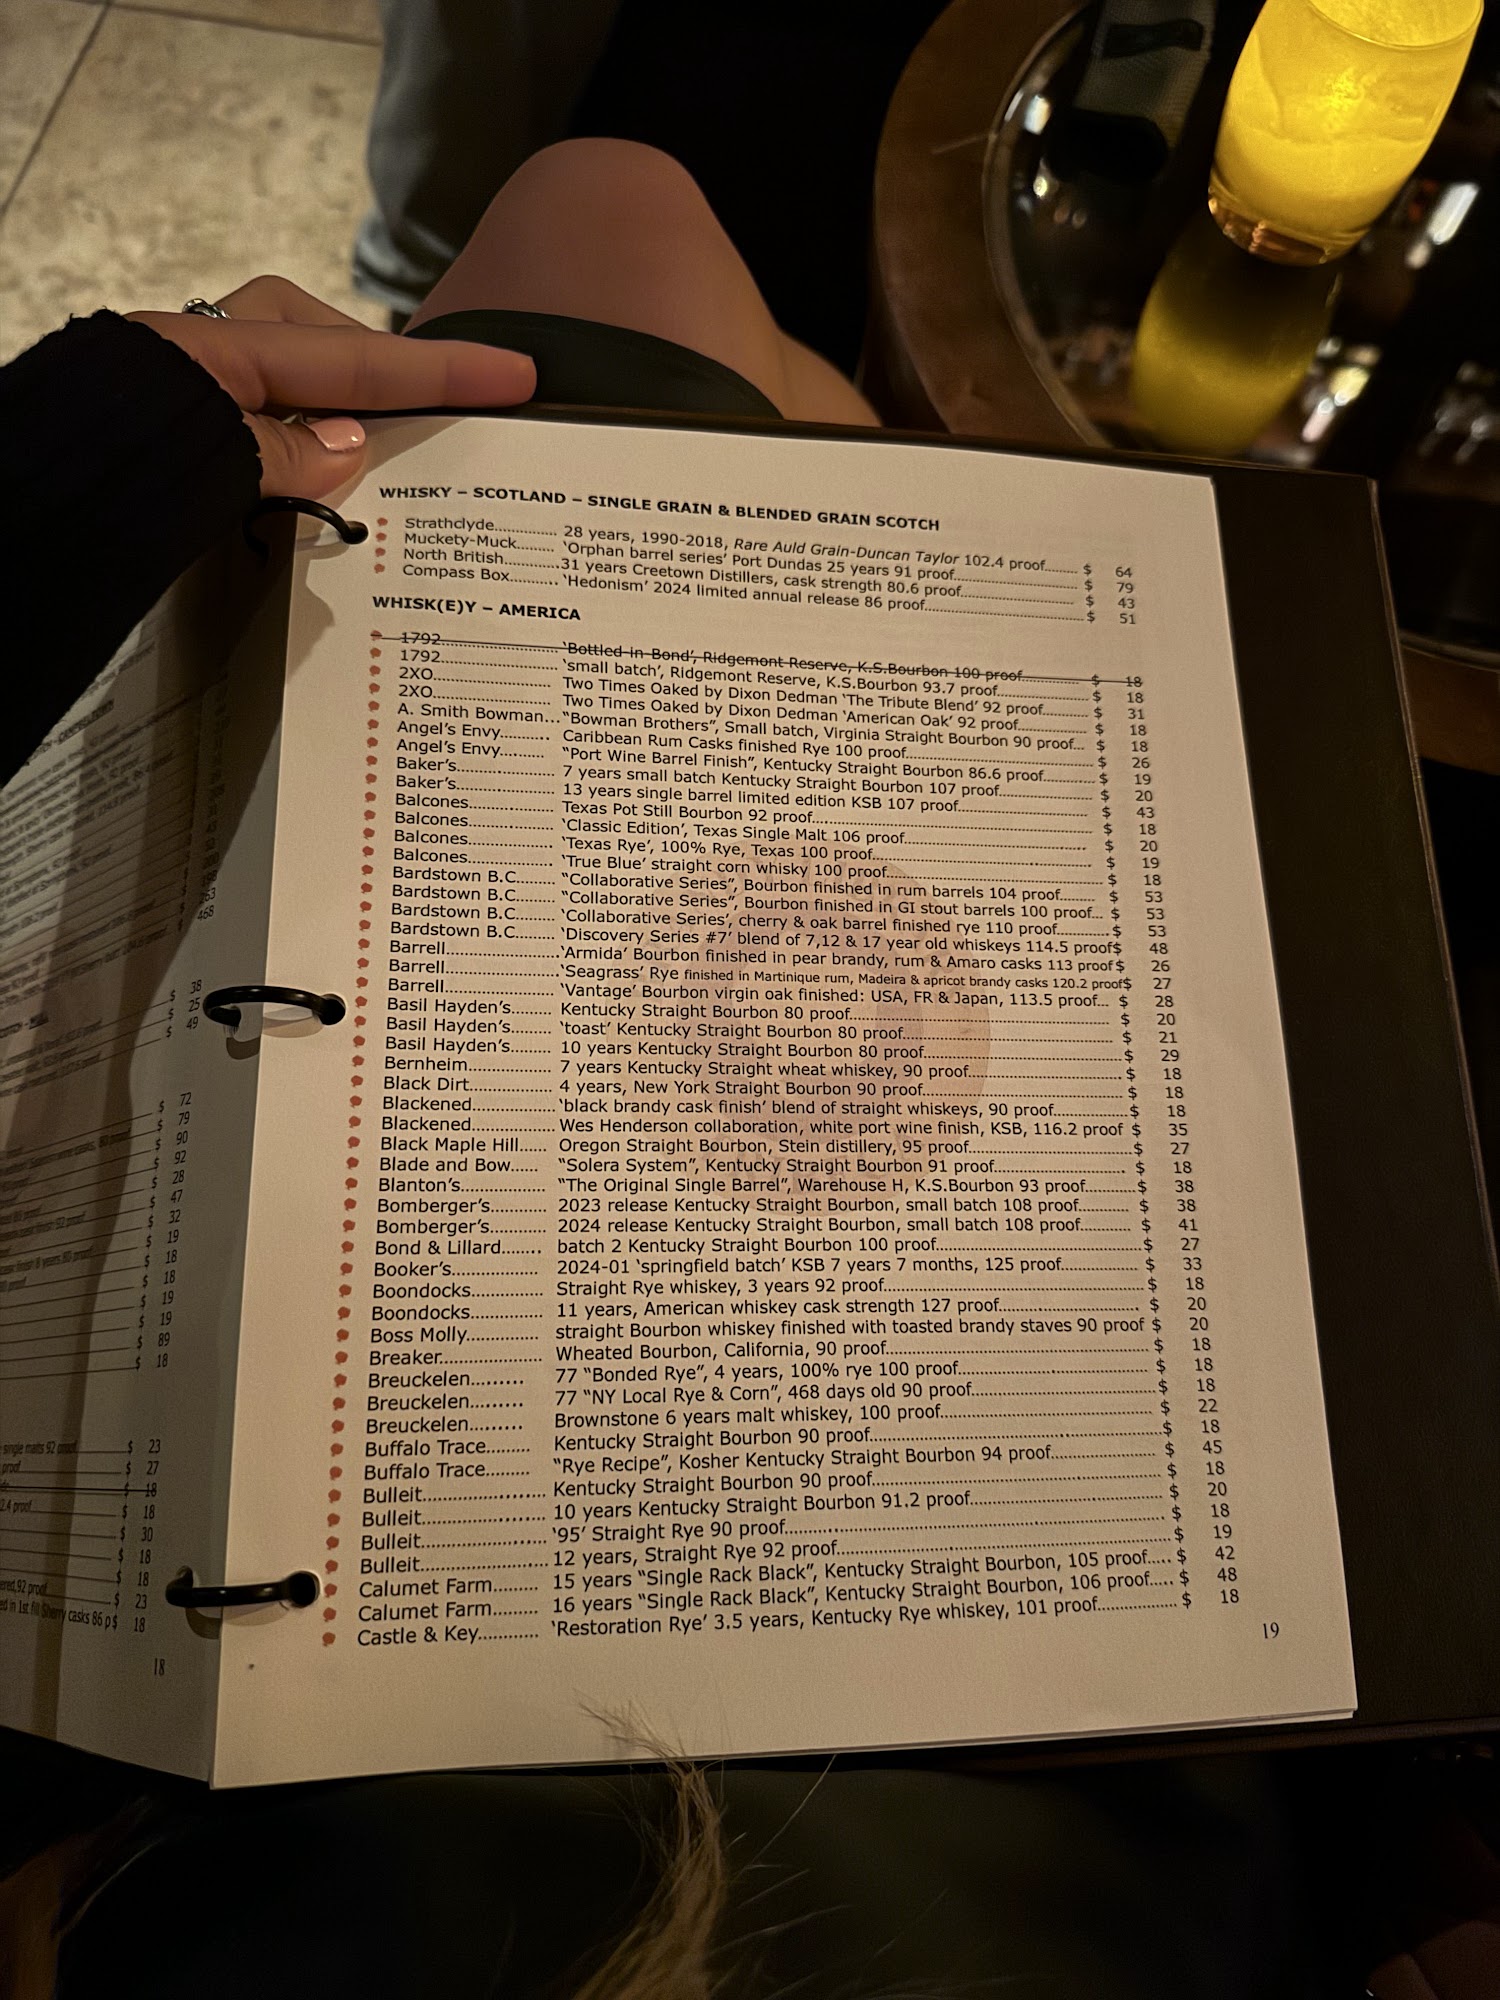 263
468
$ 38
$ 25
$ 49
$ 72
$ 79
$ 90
$ 92
$ 28
$ 47
$ 32
$ 19
$ 18
$ 18
$ 19
$ 19
$ 89
$ 18
single malts 92 proof $ 23
proof $ 27
$ 18
2.4 proof $ 18
$ 30
$ 18
$ 18
ered,92 proof $ 23
ed in 1st fill Sherry casks 86 p$ 18
18
WHISKY – SCOTLAND – SINGLE GRAIN & BLENDED GRAIN SCOTCH
Strathclyde.............. 28 years, 1990-2018, Rare Auld Grain-Duncan Taylor 102.4 proof....... $ 64
Muckety-Muck......... 'Orphan barrel series' Port Dundas 25 years 91 proof.......................... $ 79
North British............31 years Creetown Distillers, cask strength 80.6 proof....................... $ 43
Compass Box........... 'Hedonism' 2024 limited annual release 86 proof................................ $ 51
WHISK(E)Y – AMERICA
1792......................... 'Bottled-in-Bond', Ridgemont Reserve, K.S.Bourbon 100 proof............. $ 18
1792......................... 'small batch', Ridgemont Reserve, K.S.Bourbon 93.7 proof.................. $ 18
2XO.......................... Two Times Oaked by Dixon Dedman 'The Tribute Blend' 92 proof.......... $ 31
2XO.......................... Two Times Oaked by Dixon Dedman 'American Oak' 92 proof............... $ 18
A. Smith Bowman...“Bowman Brothers”, Small batch, Virginia Straight Bourbon 90 proof... $ 18
Angel's Envy.......... Caribbean Rum Casks finished Rye 100 proof...................................... $ 26
Angel's Envy.......... “Port Wine Barrel Finish”, Kentucky Straight Bourbon 86.6 proof.......... $ 19
Baker's.................... 7 years small batch Kentucky Straight Bourbon 107 proof.................... $ 20
Baker's.................... 13 years single barrel limited edition KSB 107 proof........................... $ 43
Balcones.................. Texas Pot Still Bourbon 92 proof......................................................... $ 18
Balcones.................. 'Classic Edition', Texas Single Malt 106 proof..................................... $ 20
Balcones.................. 'Texas Rye', 100% Rye, Texas 100 proof............................................ $ 19
Balcones.................. 'True Blue' straight corn whisky 100 proof......................................... $ 18
Bardstown B.C........ “Collaborative Series”, Bourbon finished in rum barrels 104 proof....... $ 53
Bardstown B.C........ “Collaborative Series”, Bourbon finished in GI stout barrels 100 proof... $ 53
Bardstown B.C........ 'Collaborative Series', cherry & oak barrel finished rye 110 proof...........$ 53
Bardstown B.C........ 'Discovery Series #7' blend of 7,12 & 17 year old whiskeys 114.5 proof$ 48
Barrell.......................'Armida' Bourbon finished in pear brandy, rum & Amaro casks 113 proof$ 26
Barrell.......................'Seagrass' Rye finished in Martinique rum, Madeira & apricot brandy casks 120.2 proof$ 27
Barrell...................... 'Vantage' Bourbon virgin oak finished: USA, FR & Japan, 113.5 proof... $ 28
Basil Hayden's......... Kentucky Straight Bourbon 80 proof................................................... $ 20
Basil Hayden's......... 'toast' Kentucky Straight Bourbon 80 proof......................................... $ 21
Basil Hayden's......... 10 years Kentucky Straight Bourbon 80 proof..................................... $ 29
Bernheim................. 7 years Kentucky Straight wheat whiskey, 90 proof.............................$ 18
Black Dirt................. 4 years, New York Straight Bourbon 90 proof...................................... $ 18
Blackened.................'black brandy cask finish' blend of straight whiskeys, 90 proof..............$ 18
Blackened................. Wes Henderson collaboration, white port wine finish, KSB, 116.2 proof $ 35
Black Maple Hill...... Oregon Straight Bourbon, Stein distillery, 95 proof...............................$ 27
Blade and Bow...... “Solera System”, Kentucky Straight Bourbon 91 proof......................... $ 18
Blanton's.................. “The Original Single Barrel”, Warehouse H, K.S.Bourbon 93 proof...........$ 38
Bomberger's............ 2023 release Kentucky Straight Bourbon, small batch 108 proof.......... $ 38
Bomberger's............ 2024 release Kentucky Straight Bourbon, small batch 108 proof.......... $ 41
Bond & Lillard........ batch 2 Kentucky Straight Bourbon 100 proof.......................................$ 27
Booker's................... 2024-01 'springfield batch' KSB 7 years 7 months, 125 proof............... $ 33
Boondocks............... Straight Rye whiskey, 3 years 92 proof.................................................$ 18
Boondocks............... 11 years, American whiskey cask strength 127 proof........................... $ 20
Boss Molly............... straight Bourbon whiskey finished with toasted brandy staves 90 proof $ 20
Breaker.................... Wheated Bourbon, California, 90 proof................................................ $ 18
Breuckelen......... 77 “Bonded Rye”, 4 years, 100% rye 100 proof.................................... $ 18
Breuckelen......... 77 “NY Local Rye & Corn”, 468 days old 90 proof...................................$ 18
Breuckelen......... Brownstone 6 years malt whiskey, 100 proof........................................ $ 22
Buffalo Trace......... Kentucky Straight Bourbon 90 proof......................................................$ 18
Buffalo Trace......... “Rye Recipe”, Kosher Kentucky Straight Bourbon 94 proof................... $ 45
Bulleit....................... Kentucky Straight Bourbon 90 proof..................................................... $ 18
Bulleit....................... 10 years Kentucky Straight Bourbon 91.2 proof.................................... $ 20
Bulleit....................... '95' Straight Rye 90 proof..................................................................... $ 18
Bulleit.......................12 years, Straight Rye 92 proof.............................................................. $ 19
Calumet Farm......... 15 years “Single Rack Black”, Kentucky Straight Bourbon, 105 proof..... $ 42
Calumet Farm......... 16 years “Single Rack Black”, Kentucky Straight Bourbon, 106 proof..... $ 48
Castle & Key............ 'Restoration Rye' 3.5 years, Kentucky Rye whiskey, 101 proof................ $ 18
19